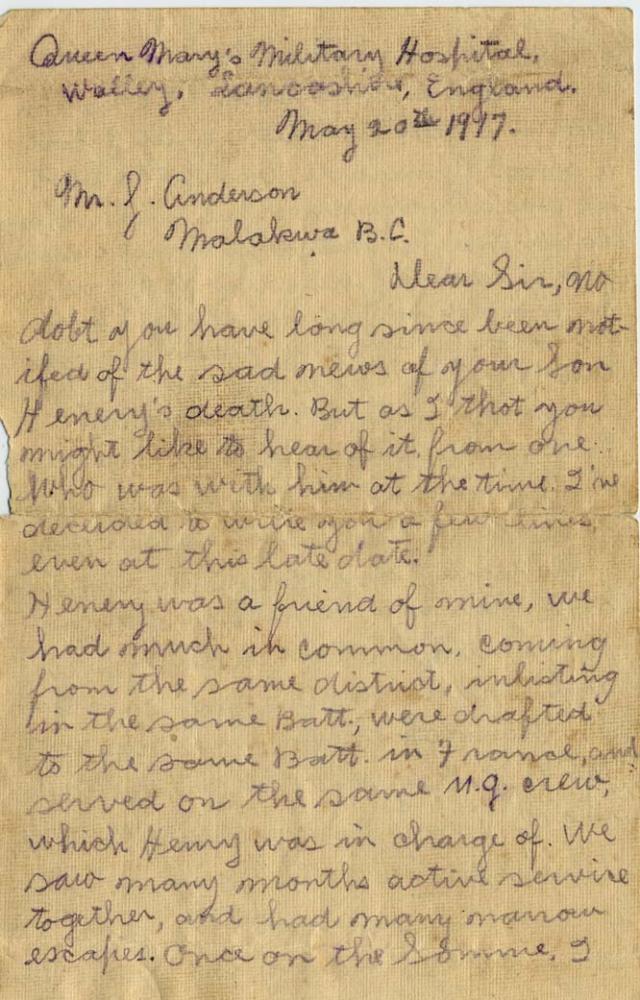 Queen Mary's Military Hospital,
Walley, Lancashire, England.
May 20th 1917.
Mr. J. Anderson
Malakwa B.C.
Dear Sir, No
dobt you have long since been not-
ifed of the sad news of your Son
Henery's death. But as I thot you
might like to hear of it from one
Who was with him at the time. I've
decided to write you a few lines,
even at this late date.
Henery was a friend of mine, we
had much in common, coming
from the same district, inlisting
in the same Batt., were drafted
to the same Batt. in France, and
served on the same M.g. crew,
which Henry was in charge of. We
saw many months active service
together, and had many narrow
escapes. Once on the Somme, I